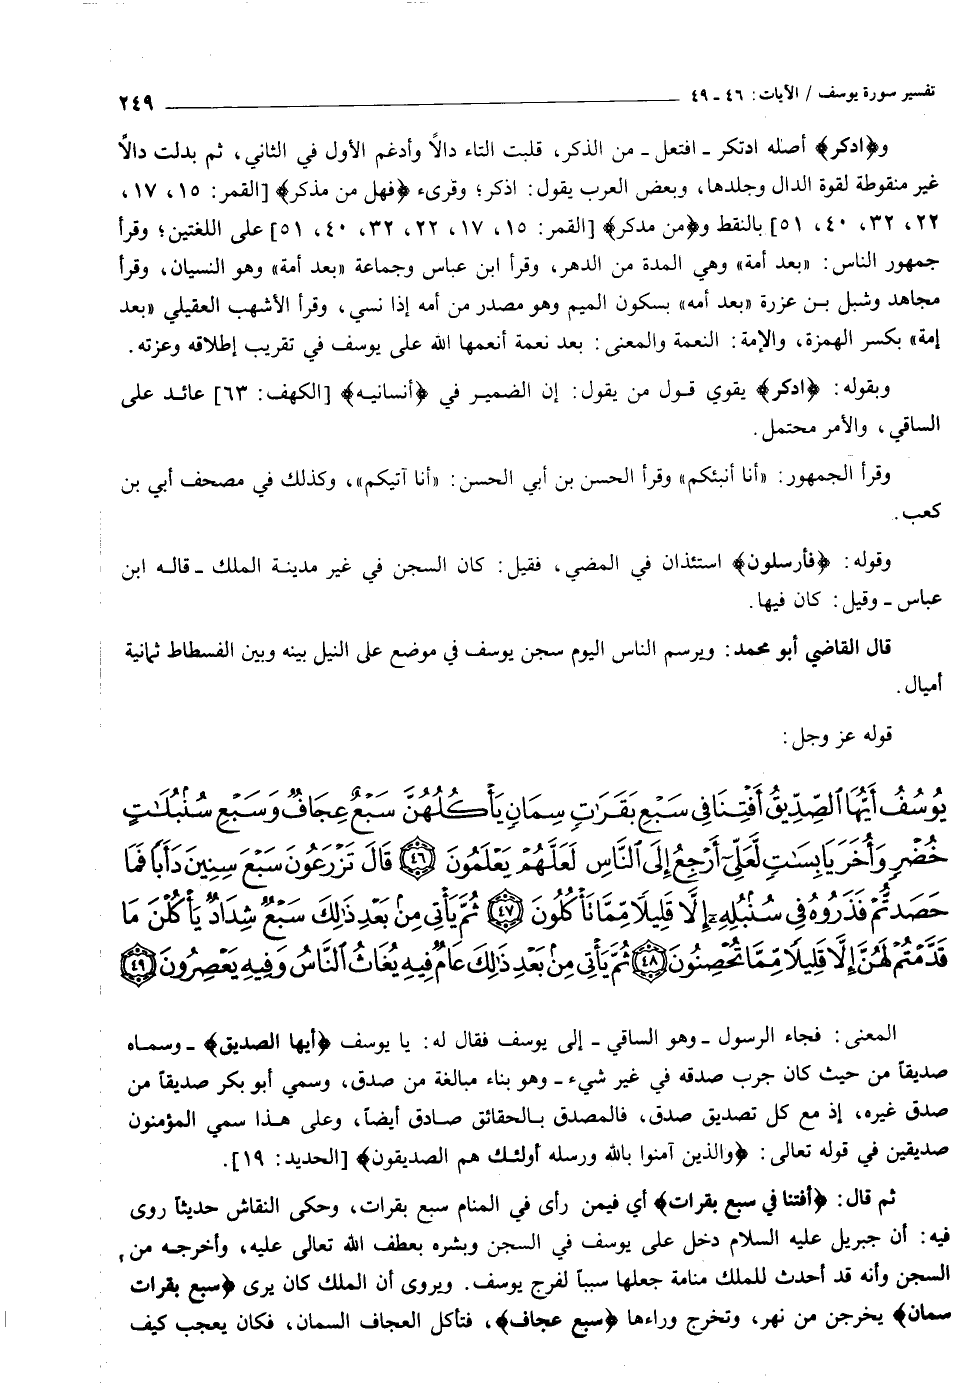 تفسير سورة يوسف / الآيات: ٤٦ ـ ٤٩ ــــــــــــ ٢٤٩
و﴿ادكر﴾ أصله ادتكر ـ افتعل ـ من الذكر، قلبت التاء دالاً وأدغم الأول في الثاني، ثم بدلت دالاً
غير منقوطة لقوة الدال وجلدها، وبعض العرب يقول: اذكر؛ وقرىء ﴿فهل من مذكر﴾ [القمر: ١٥، ١٧،
٢٢، ٣٢، ٤٠، ٥١] بالنقط و﴿من مدكر﴾ [القمر: ١٥، ١٧، ٢٢، ٣٢، ٤٠، ٥١] على اللغتين؛ وقرأ
جمهور الناس: «بعد أمة» وهي المدة من الدهر، وقرأ ابن عباس وجماعة «بعد أمة» وهو النسيان، وقرأ
مجاهد وشبل بن عزرة «بعد أمه» بسكون الميم وهو مصدر من أمه إذا نسي، وقرأ الأشهب العقيلي «بعد
إمة» بكسر الهمزة، والإمة: النعمة والمعنى: بعد نعمة أنعمها الله على يوسف في تقريب إطلاقه وعزته.
وبقوله: ﴿ادكر﴾ يقوي قول من يقول: إن الضمير في ﴿أنسانيه﴾ [الكهف: ٦٣] عائد على
الساقي، والأمر محتمل.
وقرأ الجمهور: «أنا أنبئكم» وقرأ الحسن بن أبي الحسن: «أنا آتيكم»، وكذلك في مصحف أبي بن
كعب.
وقوله: ﴿فأرسلون﴾ استئذان في المضي، فقيل: كان السجن في غير مدينة الملك ـ قاله ابن
عباس ـ وقيل: كان فيها.
قال القاضي أبو محمد: ويرسم الناس اليوم سجن يوسف في موضع على النيل بينه وبين الفسطاط ثمانية
أميال.
قوله عز وجل:
يُوسُفُ أَيُّهَا ٱلصِّدِّيقُ أَفْتِنَا فِي سَبْعِ بَقَرَٰتٍ سِمَانٍ يَأْكُلُهُنَّ سَبْعٌ عِجَافٌ وَسَبْعِ سُنۢبُلَٰتٍ
خُضْرٍ وَأُخَرَ يَابِسَٰتٍ لَّعَلِّىٓ أَرْجِعُ إِلَى ٱلنَّاسِ لَعَلَّهُمْ يَعْلَمُونَ ﴿٤٦﴾ قَالَ تَزْرَعُونَ سَبْعَ سِنِينَ دَأَبًا فَمَا
حَصَدتُّمْ فَذَرُوهُ فِي سُنۢبُلِهِۦٓ إِلَّا قَلِيلًا مِّمَّا تَأْكُلُونَ ﴿٤٧﴾ ثُمَّ يَأْتِي مِنۢ بَعْدِ ذَٰلِكَ سَبْعٌ شِدَادٌ يَأْكُلْنَ مَا
قَدَّمْتُمْ لَهُنَّ إِلَّا قَلِيلًا مِّمَّا تُحْصِنُونَ ﴿٤٨﴾ ثُمَّ يَأْتِي مِنۢ بَعْدِ ذَٰلِكَ عَامٌ فِيهِ يُغَاثُ ٱلنَّاسُ وَفِيهِ يَعْصِرُونَ ﴿٤٩﴾
المعنى: فجاء الرسول ـ وهو الساقي ـ إلى يوسف فقال له: يا يوسف ﴿أيها الصديق﴾ ـ وسماه
صديقاً من حيث كان جرب صدقه في غير شيء ـ وهو بناء مبالغة من صدق، وسمي أبو بكر صديقاً من
صدق غيره، إذ مع كل تصديق صدق، فالمصدق بالحقائق صادق أيضاً، وعلى هذا سمي المؤمنون
صديقين في قوله تعالى: ﴿والذين آمنوا بالله ورسله أولئك هم الصديقون﴾ [الحديد: ١٩].
ثم قال: ﴿أفتنا في سبع بقرات﴾ أي فيمن رأى في المنام سبع بقرات، وحكى النقاش حديثاً روى
فيه: أن جبريل عليه السلام دخل على يوسف في السجن وبشره بعطف الله تعالى عليه، وأخرجه من
السجن وأنه قد أحدث للملك منامة جعلها سبباً لفرج يوسف. ويروى أن الملك كان يرى ﴿سبع بقرات
سمان﴾ يخرجن من نهر، وتخرج وراءها ﴿سبع عجاف﴾، فتأكل العجاف السمان، فكان يعجب كيف